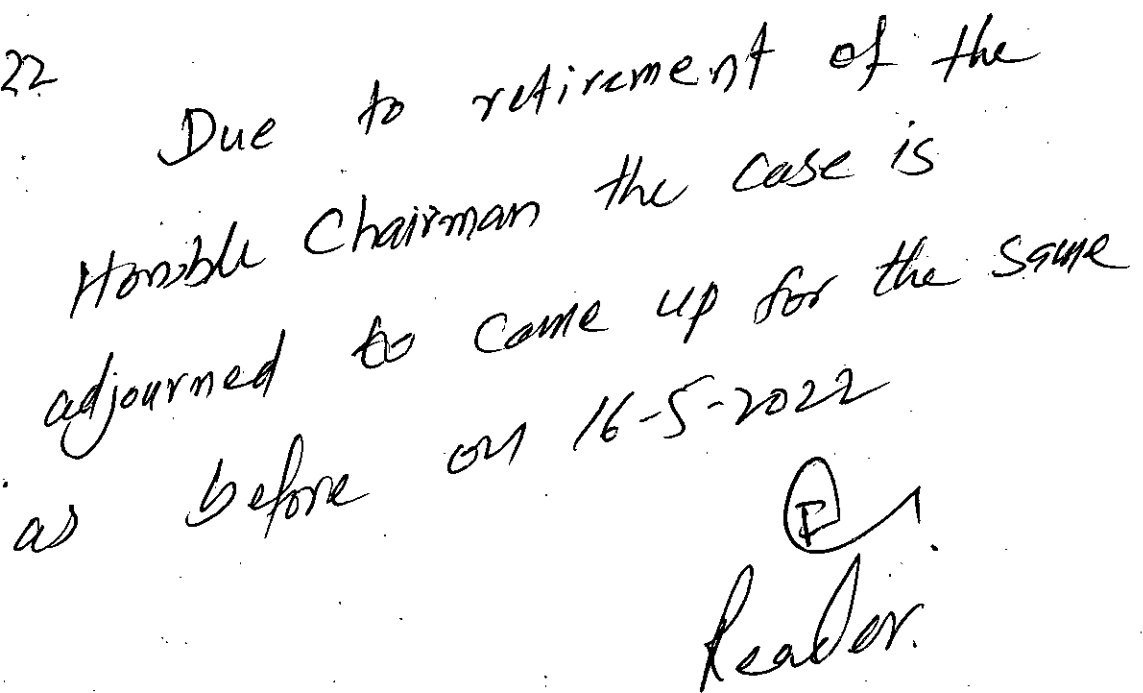 22
Due to retirement of the
Honoble Chairman the case is
adjourned to come up for the same
as before on 16-5-2022
Reader.